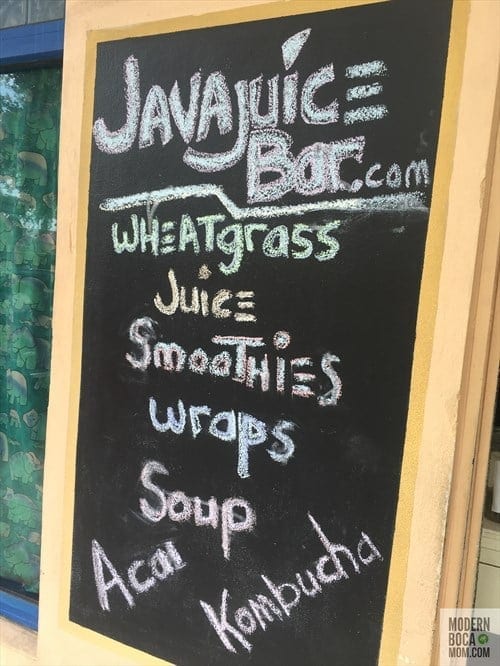 JAVAJUiCE
Bar.com
WHEATgrass
Juice
SmooTHiES
wraps
Soup
Acai
Kombucha
MODERN
BOCA
MOM.COM